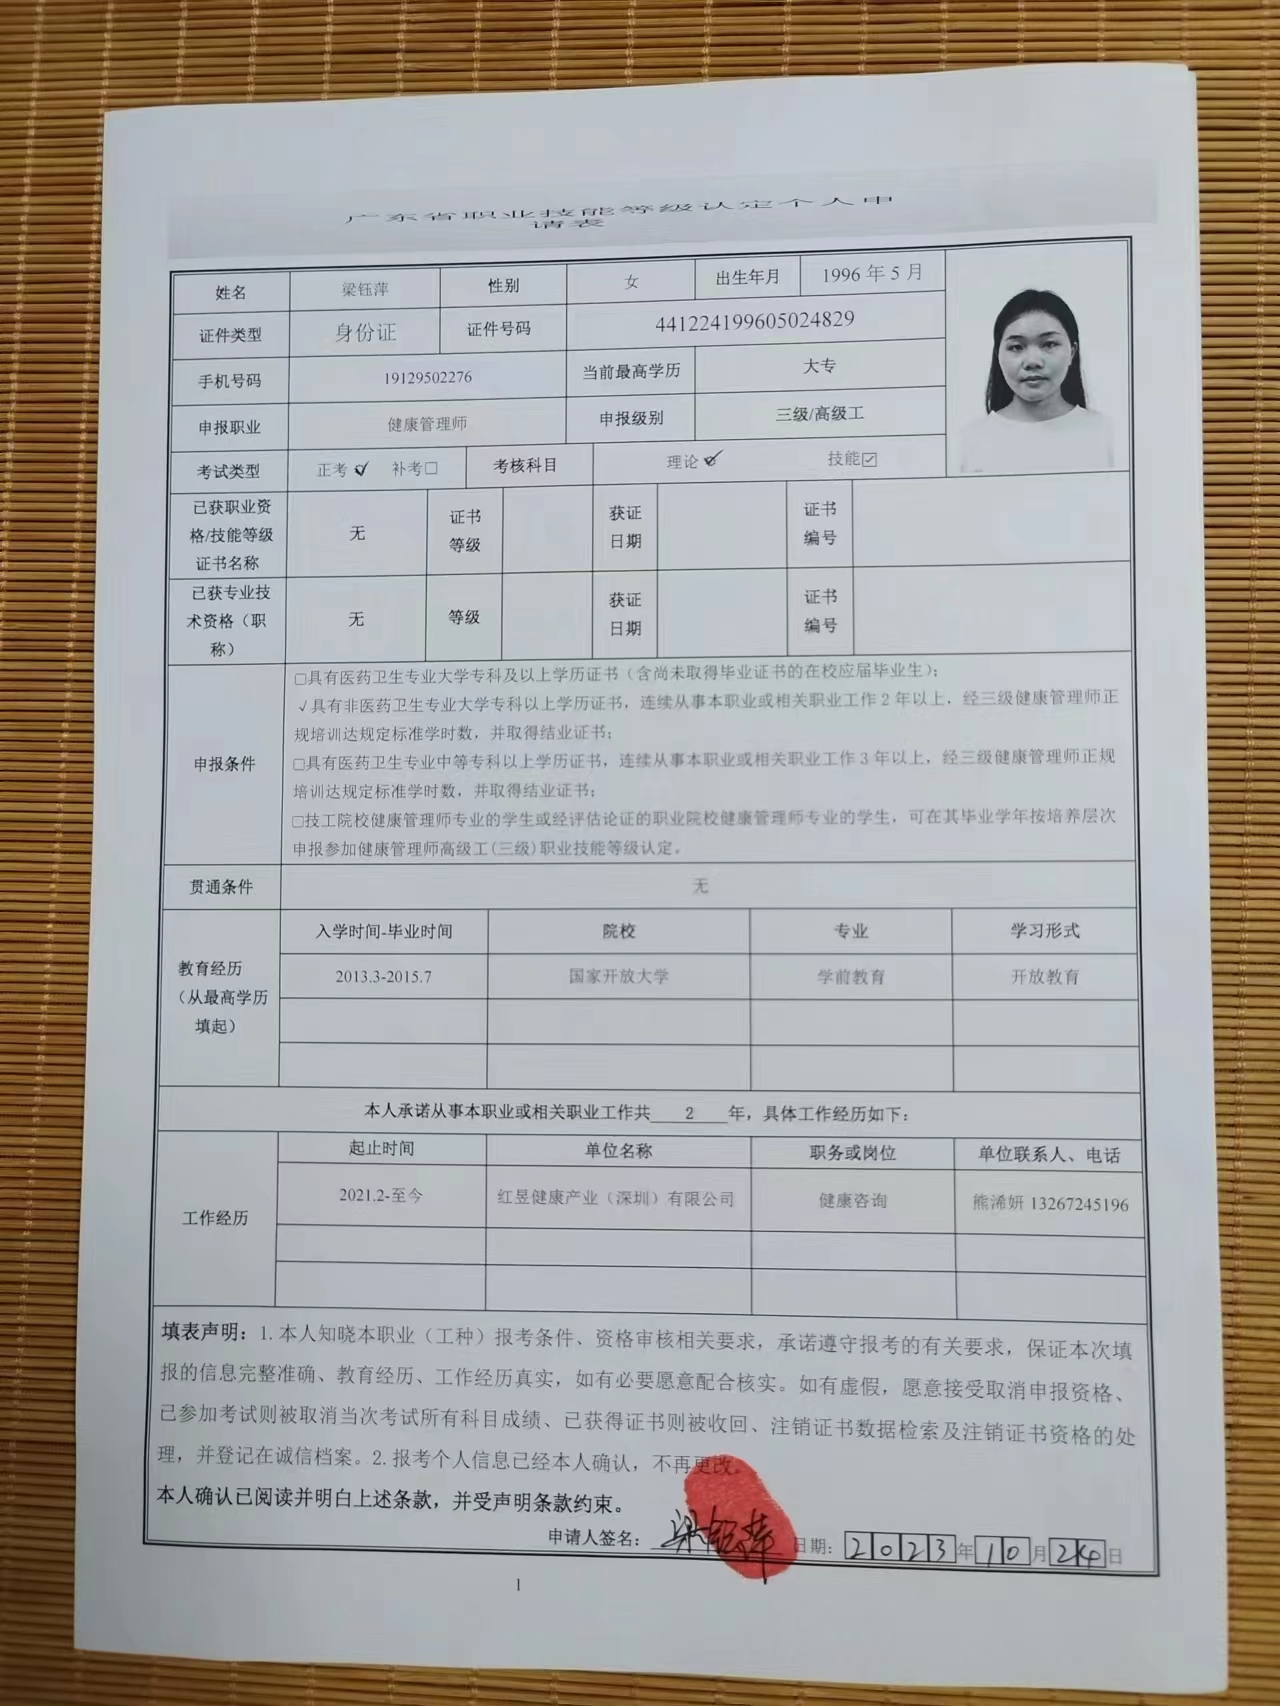 广东省职业技能等级认定个人申
请表
姓名 梁钰萍 性别 女 出生年月 1996 年 5 月
证件类型 身份证 证件号码 441224199605024829
手机号码 19129502276 当前最高学历 大专
申报职业 健康管理师 申报级别 三级/高级工
考试类型 正考☑ 补考□ 考核科目 理论☑ 技能☑
已获职业资
格/技能等级
证书名称
无
证书
等级
获证
日期
证书
编号
已获专业技
术资格（职
称）
无
等级
获证
日期
证书
编号
申报条件
□具有医药卫生专业大学专科及以上学历证书（含尚未取得毕业证书的在校应届毕业生）；
√具有非医药卫生专业大学专科以上学历证书，连续从事本职业或相关职业工作 2 年以上，经三级健康管理师正
规培训达规定标准学时数，并取得结业证书；
□具有医药卫生专业中等专科以上学历证书，连续从事本职业或相关职业工作 3 年以上，经三级健康管理师正规
培训达规定标准学时数，并取得结业证书；
□技工院校健康管理师专业的学生或经评估论证的职业院校健康管理师专业的学生，可在其毕业学年按培养层次
申报参加健康管理师高级工(三级)职业技能等级认定。
贯通条件 无
教育经历
（从最高学历
填起）
入学时间-毕业时间 院校 专业 学习形式
2013.3-2015.7 国家开放大学 学前教育 开放教育
本人承诺从事本职业或相关职业工作共 2 年，具体工作经历如下：
工作经历
起止时间 单位名称 职务或岗位 单位联系人、电话
2021.2-至今 红昱健康产业（深圳）有限公司 健康咨询 熊浠妍 13267245196
填表声明：1.本人知晓本职业（工种）报考条件、资格审核相关要求，承诺遵守报考的有关要求，保证本次填
报的信息完整准确、教育经历、工作经历真实，如有必要愿意配合核实。如有虚假，愿意接受取消申报资格、
已参加考试则被取消当次考试所有科目成绩、已获得证书则被收回、注销证书数据检索及注销证书资格的处
理，并登记在诚信档案。2.报考个人信息已经本人确认，不再更改。
本人确认已阅读并明白上述条款，并受声明条款约束。
申请人签名： 梁钰萍 日期： 2023年10月24日
1